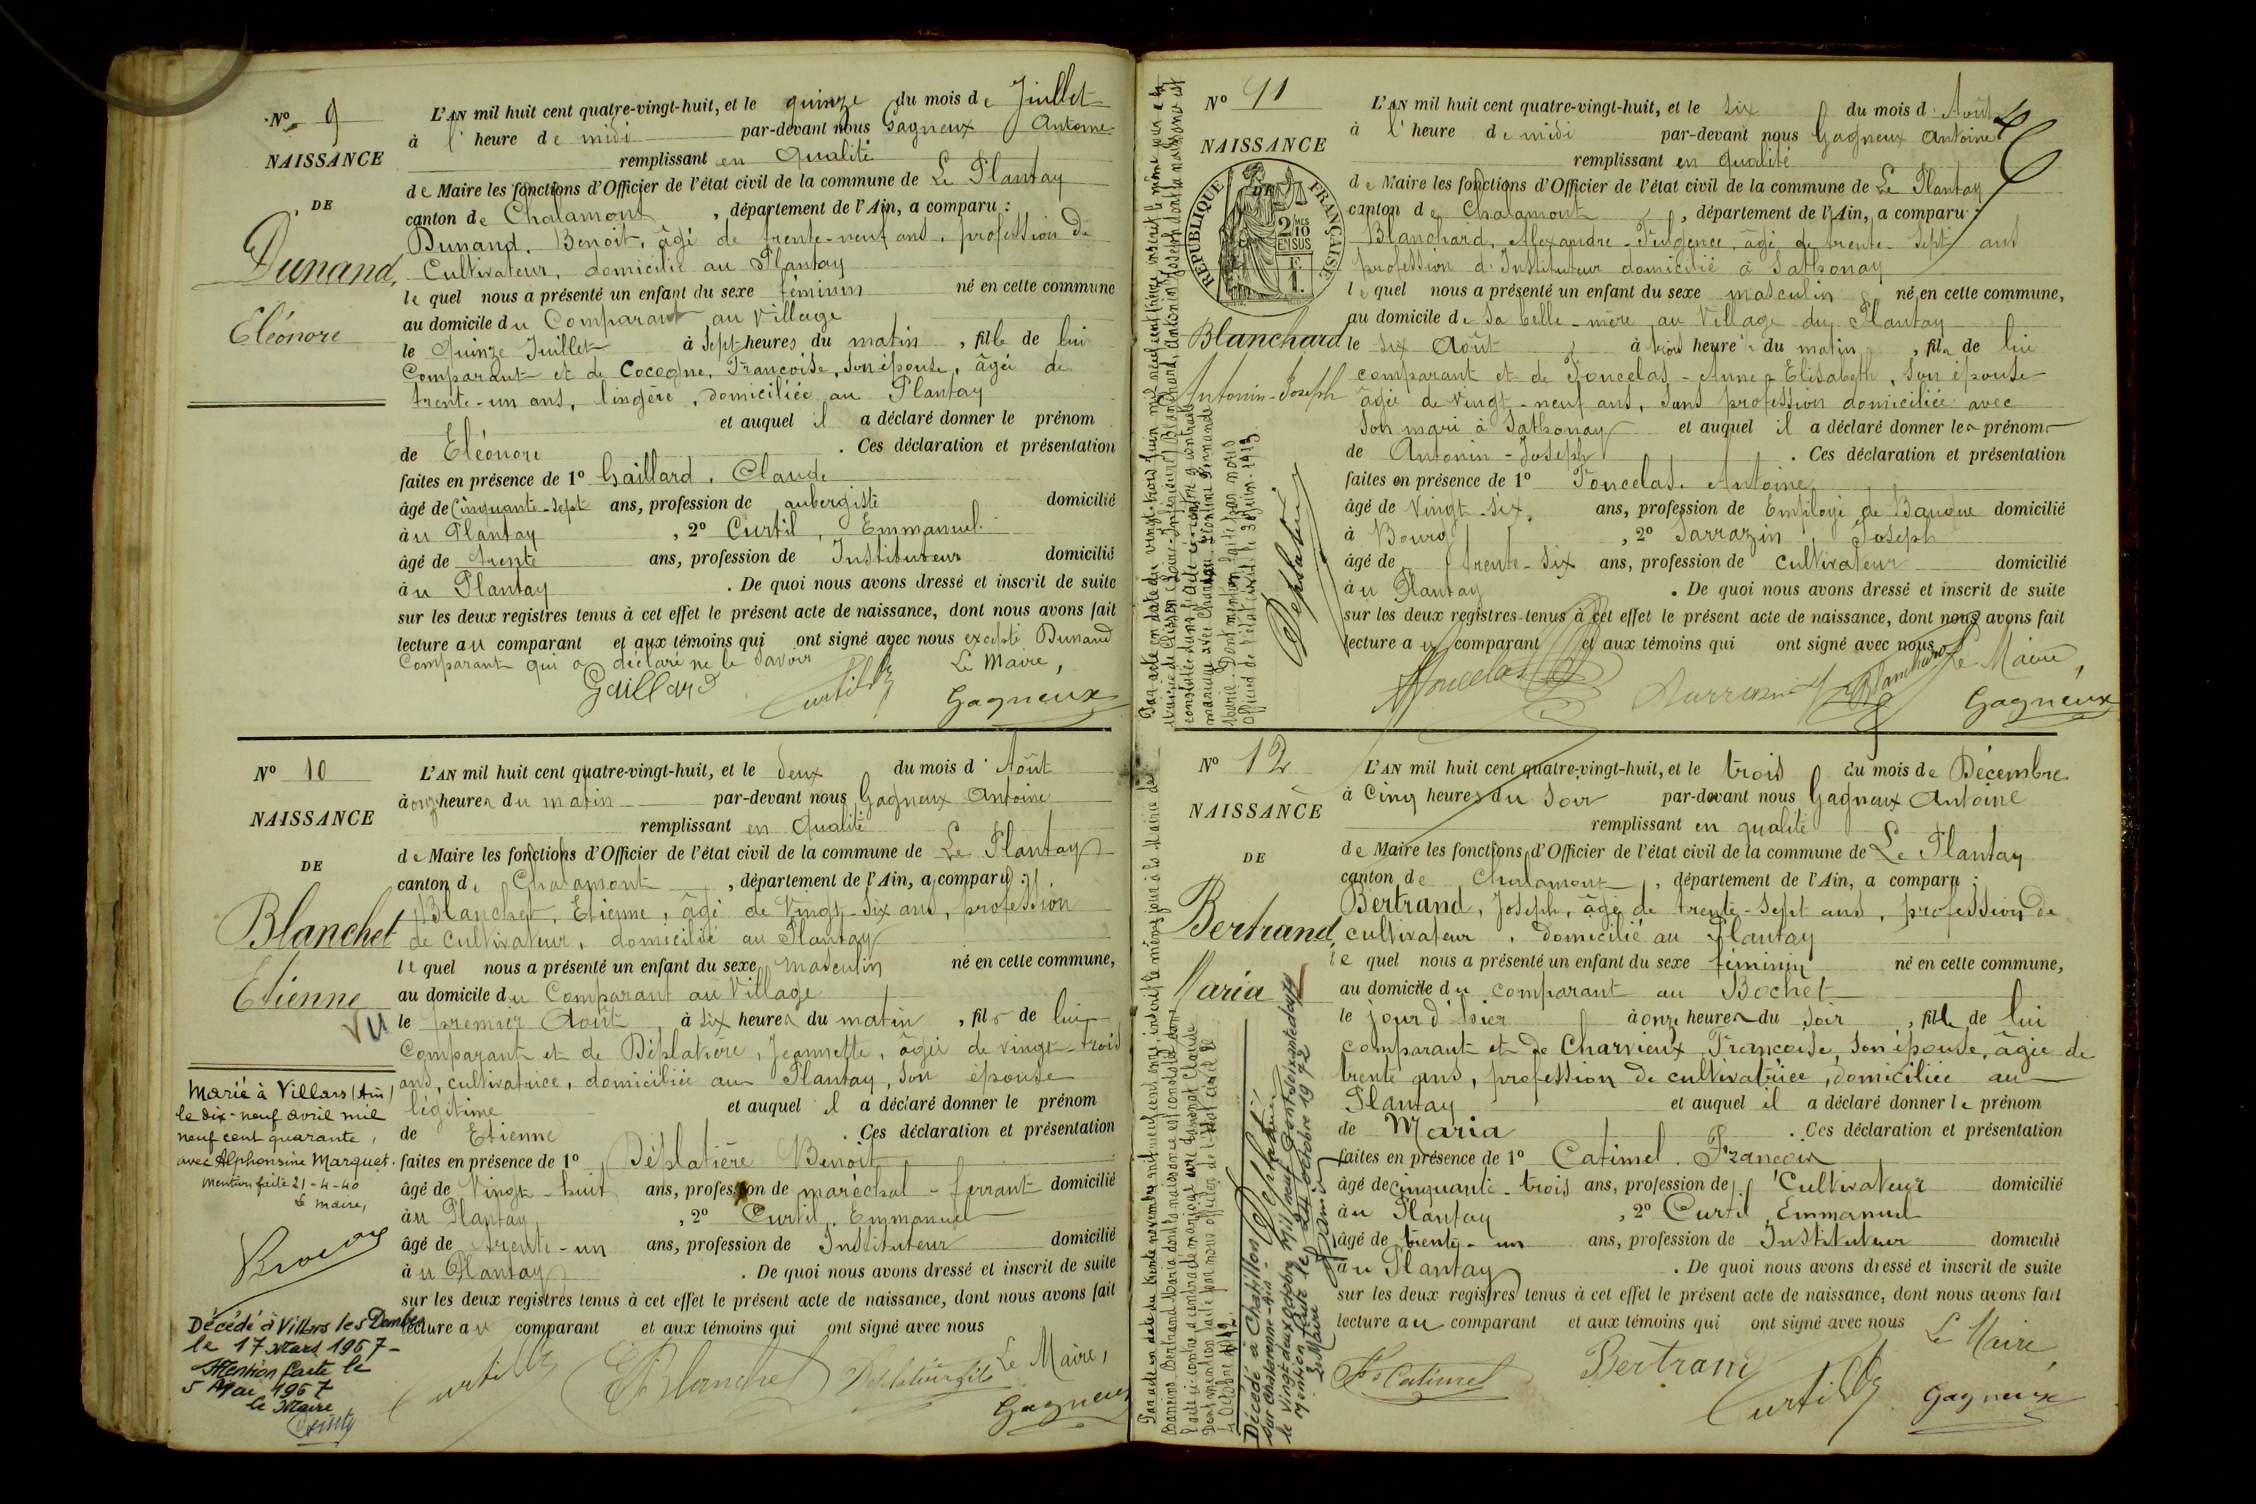 N° 9
NAISSANCE
DE
Dunand,
Eléonore
L'AN mil huit cent quatre-vingt-huit, et le quinze du mois de Juillet
à l'heure de midi par-devant nous Gagneux Antoine
remplissant en qualité
de Maire les fonctions d'Officier de l'état civil de la commune de Le Plantay
canton de Chalamont, département de l'Ain, a comparu :
Dunand, Benoit, âgé de trente-neuf ans, profession de
Cultivateur, domicilié au Plantay
lequel nous a présenté un enfant du sexe féminin né en cette commune
au domicile du Comparant au Village
le Quinze Juillet à sept heures du matin, fille de lui
Comparant et de Cocogne, Françoise, son épouse, âgée de
trente-un ans, lingère, domiciliée au Plantay
et auquel il a déclaré donner le prénom
de Eléonore. Ces déclaration et présentation
faites en présence de 1° Gaillard, Claude
âgé de Cinquante-sept ans, profession de aubergiste domicilié
au Plantay, 2° Curtil, Emmanuel
âgé de trente ans, profession de Instituteur domicilié
au Plantay. De quoi nous avons dressé et inscrit de suite
sur les deux registres tenus à cet effet le présent acte de naissance, dont nous avons fait
lecture au comparant et aux témoins qui ont signé avec nous excepté Dunand
Comparant qui a déclaré ne le savoir
Le Maire,
Gaillard Curtil Gagneux
N° 10
NAISSANCE
DE
Blanchet
Etienne
Vu
Marié à Villars (Ain)
le dix-neuf avril mil
neuf cent quarante,
avec Alphonsine Marguet.
Mention faite 21-4-40
Le maire,
Décédé à Villars les Dombes
le 17 Mars 1967
Mention faite le
5 Mai 1967
le Maire
L'AN mil huit cent quatre-vingt-huit, et le deux du mois d'Août
à onze heures du matin par-devant nous Gagneux Antoine
remplissant en qualité
de Maire les fonctions d'Officier de l'état civil de la commune de Le Plantay
canton de Chalamont, département de l'Ain, a comparu :
Blanchet, Etienne, âgé de Vingt-six ans, profession
de cultivateur, domicilié au Plantay
lequel nous a présenté un enfant du sexe masculin né en cette commune,
au domicile du Comparant au Village
le premier Août à six heures du matin, fils de lui
Comparant et de Déplatière, Jeannette, âgée de vingt-trois
ans, cultivatrice, domiciliée au Plantay, son épouse
légitime et auquel il a déclaré donner le prénom
de Etienne. Ces déclaration et présentation
faites en présence de 1° Déplatière Benoit
âgé de Vingt-huit ans, profession de maréchal-ferrant domicilié
au Plantay, 2° Curtil, Emmanuel
âgé de trente-un ans, profession de Instituteur domicilié
au Plantay. De quoi nous avons dressé et inscrit de suite
sur les deux registres tenus à cet effet le présent acte de naissance, dont nous avons fait
lecture au comparant et aux témoins qui ont signé avec nous
Le Maire,
Curtil E Blanchet Gagneux
N° 11
NAISSANCE
RÉPUBLIQUE FRANÇAISE
2 MES
/10
EN SUS
Blanchard
Antonin-Joseph
L'AN mil huit cent quatre-vingt-huit, et le six du mois d'Août
à l'heure de midi par-devant nous Gagneux Antoine
remplissant en qualité
de Maire les fonctions d'Officier de l'état civil de la commune de Le Plantay
canton de Chalamont, département de l'Ain, a comparu :
Blanchard, Alexandre-Fulgence, âgé de trente-sept ans
profession d'Instituteur domicilié à Sathonay
lequel nous a présenté un enfant du sexe masculin né en cette commune,
au domicile de sa belle-mère au Village du Plantay
le six Août à trois heures du matin, fils de lui
comparant et de Poncelas-Anne-Elisabeth, son épouse
âgée de vingt-neuf ans, sans profession domiciliée avec
son mari à Sathonay et auquel il a déclaré donner les prénoms
de Antonin-Joseph. Ces déclaration et présentation
faites en présence de 1° Poncelas Antoine
âgé de Vingt-six ans, profession de Employé de Banque domicilié
à Bourg, 2° Sarrazin Joseph
âgé de trente-six ans, profession de cultivateur domicilié
au Plantay. De quoi nous avons dressé et inscrit de suite
sur les deux registres tenus à cet effet le présent acte de naissance, dont nous avons fait
lecture au comparant et aux témoins qui ont signé avec nous
Le Maire,
Poncelas Sarrazin Blanchard Gagneux
N° 12
NAISSANCE
DE
Bertrand,
Maria
Décédé à Chatillon
sur Chalaronne-Ain-
le Vingt deux octobre mil neuf cent soixante douze
Mention faite le 24 octobre 1972
Le Maire
L'AN mil huit cent quatre-vingt-huit, et le trois du mois de Décembre
à cinq heures du soir par-devant nous Gagneux Antoine
remplissant en qualité
de Maire les fonctions d'Officier de l'état civil de la commune de Le Plantay
canton de Chalamont, département de l'Ain, a comparu :
Bertrand, Joseph, âgé de trente-sept ans, profession de
cultivateur, domicilié au Plantay
lequel nous a présenté un enfant du sexe féminin né en cette commune,
au domicile du comparant au Bochet
le jour d'hier à onze heures du soir, fille de lui
comparant et de Charvieux, Françoise, son épouse, âgée de
trente ans, profession de cultivatrice, domiciliée au
Plantay et auquel il a déclaré donner le prénom
de Maria. Ces déclaration et présentation
faites en présence de 1° Catimel, François
âgé de cinquante-trois ans, profession de Cultivateur domicilié
au Plantay, 2° Curtil Emmanuel
âgé de trente-un ans, profession de Instituteur domicilié
au Plantay. De quoi nous avons dressé et inscrit de suite
sur les deux registres tenus à cet effet le présent acte de naissance, dont nous avons fait
lecture au comparant et aux témoins qui ont signé avec nous
Le Maire
Fs Catimel Bertrand Curtil Gagneux